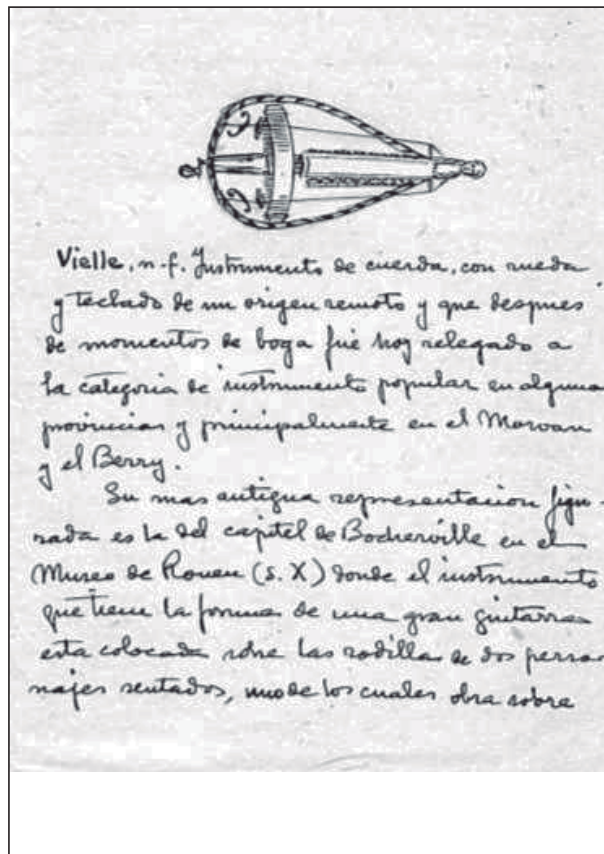 Vielle, n.f. Instrumento de cuerda, con rueda
y teclado de un origen remoto y que despues
de momentos de boga fué hoy relegado a
la categoria de instrumento popular en alguna
provincias y principalmente en el Morvan
y el Berry.
Su mas antigua representacion figu-
rada es la del capitel de Bocherville en el
Museo de Rouen (s. X) donde el instrumento
que tiene la forma de una gran guitarra
esta colocada sobre las rodilla de dos perso
najes sentados, uno de los cuales obra sobre